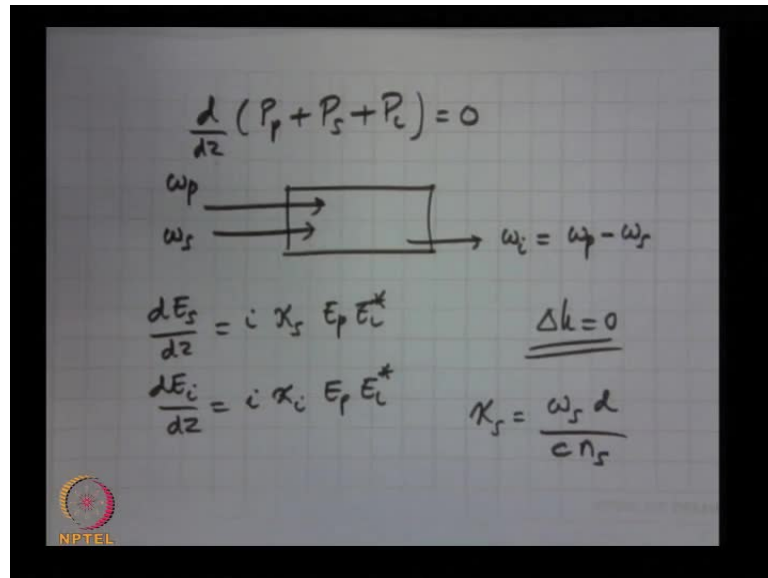 d/dz (P_p + P_s + P_i) = 0
ω_p
ω_s
ω_i = ω_p - ω_s
dE_s/dz = i κ_s E_p E_i^*
Δk = 0
dE_i/dz = i κ_i E_p E_i^*
κ_s = ω_s d / c n_s
NPTEL